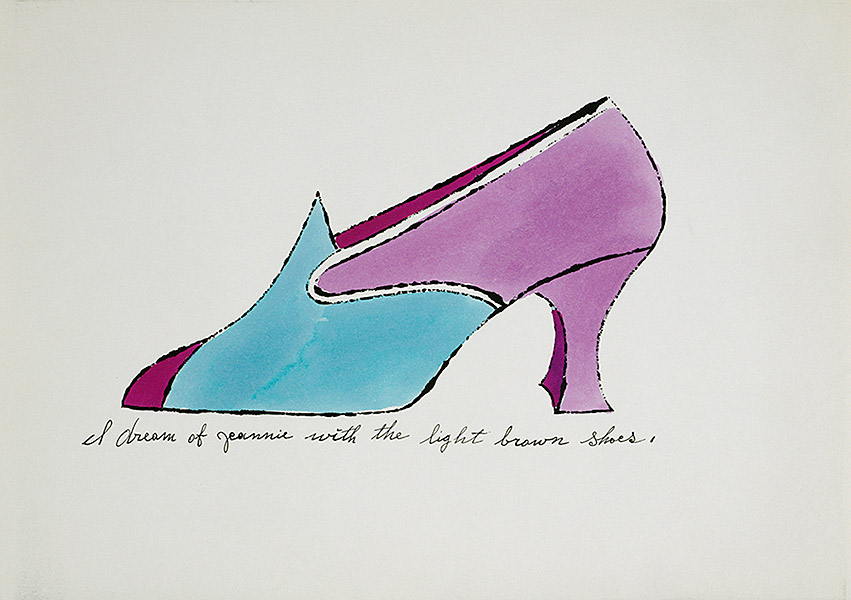 I dream of jeannie with the light brown shoes.